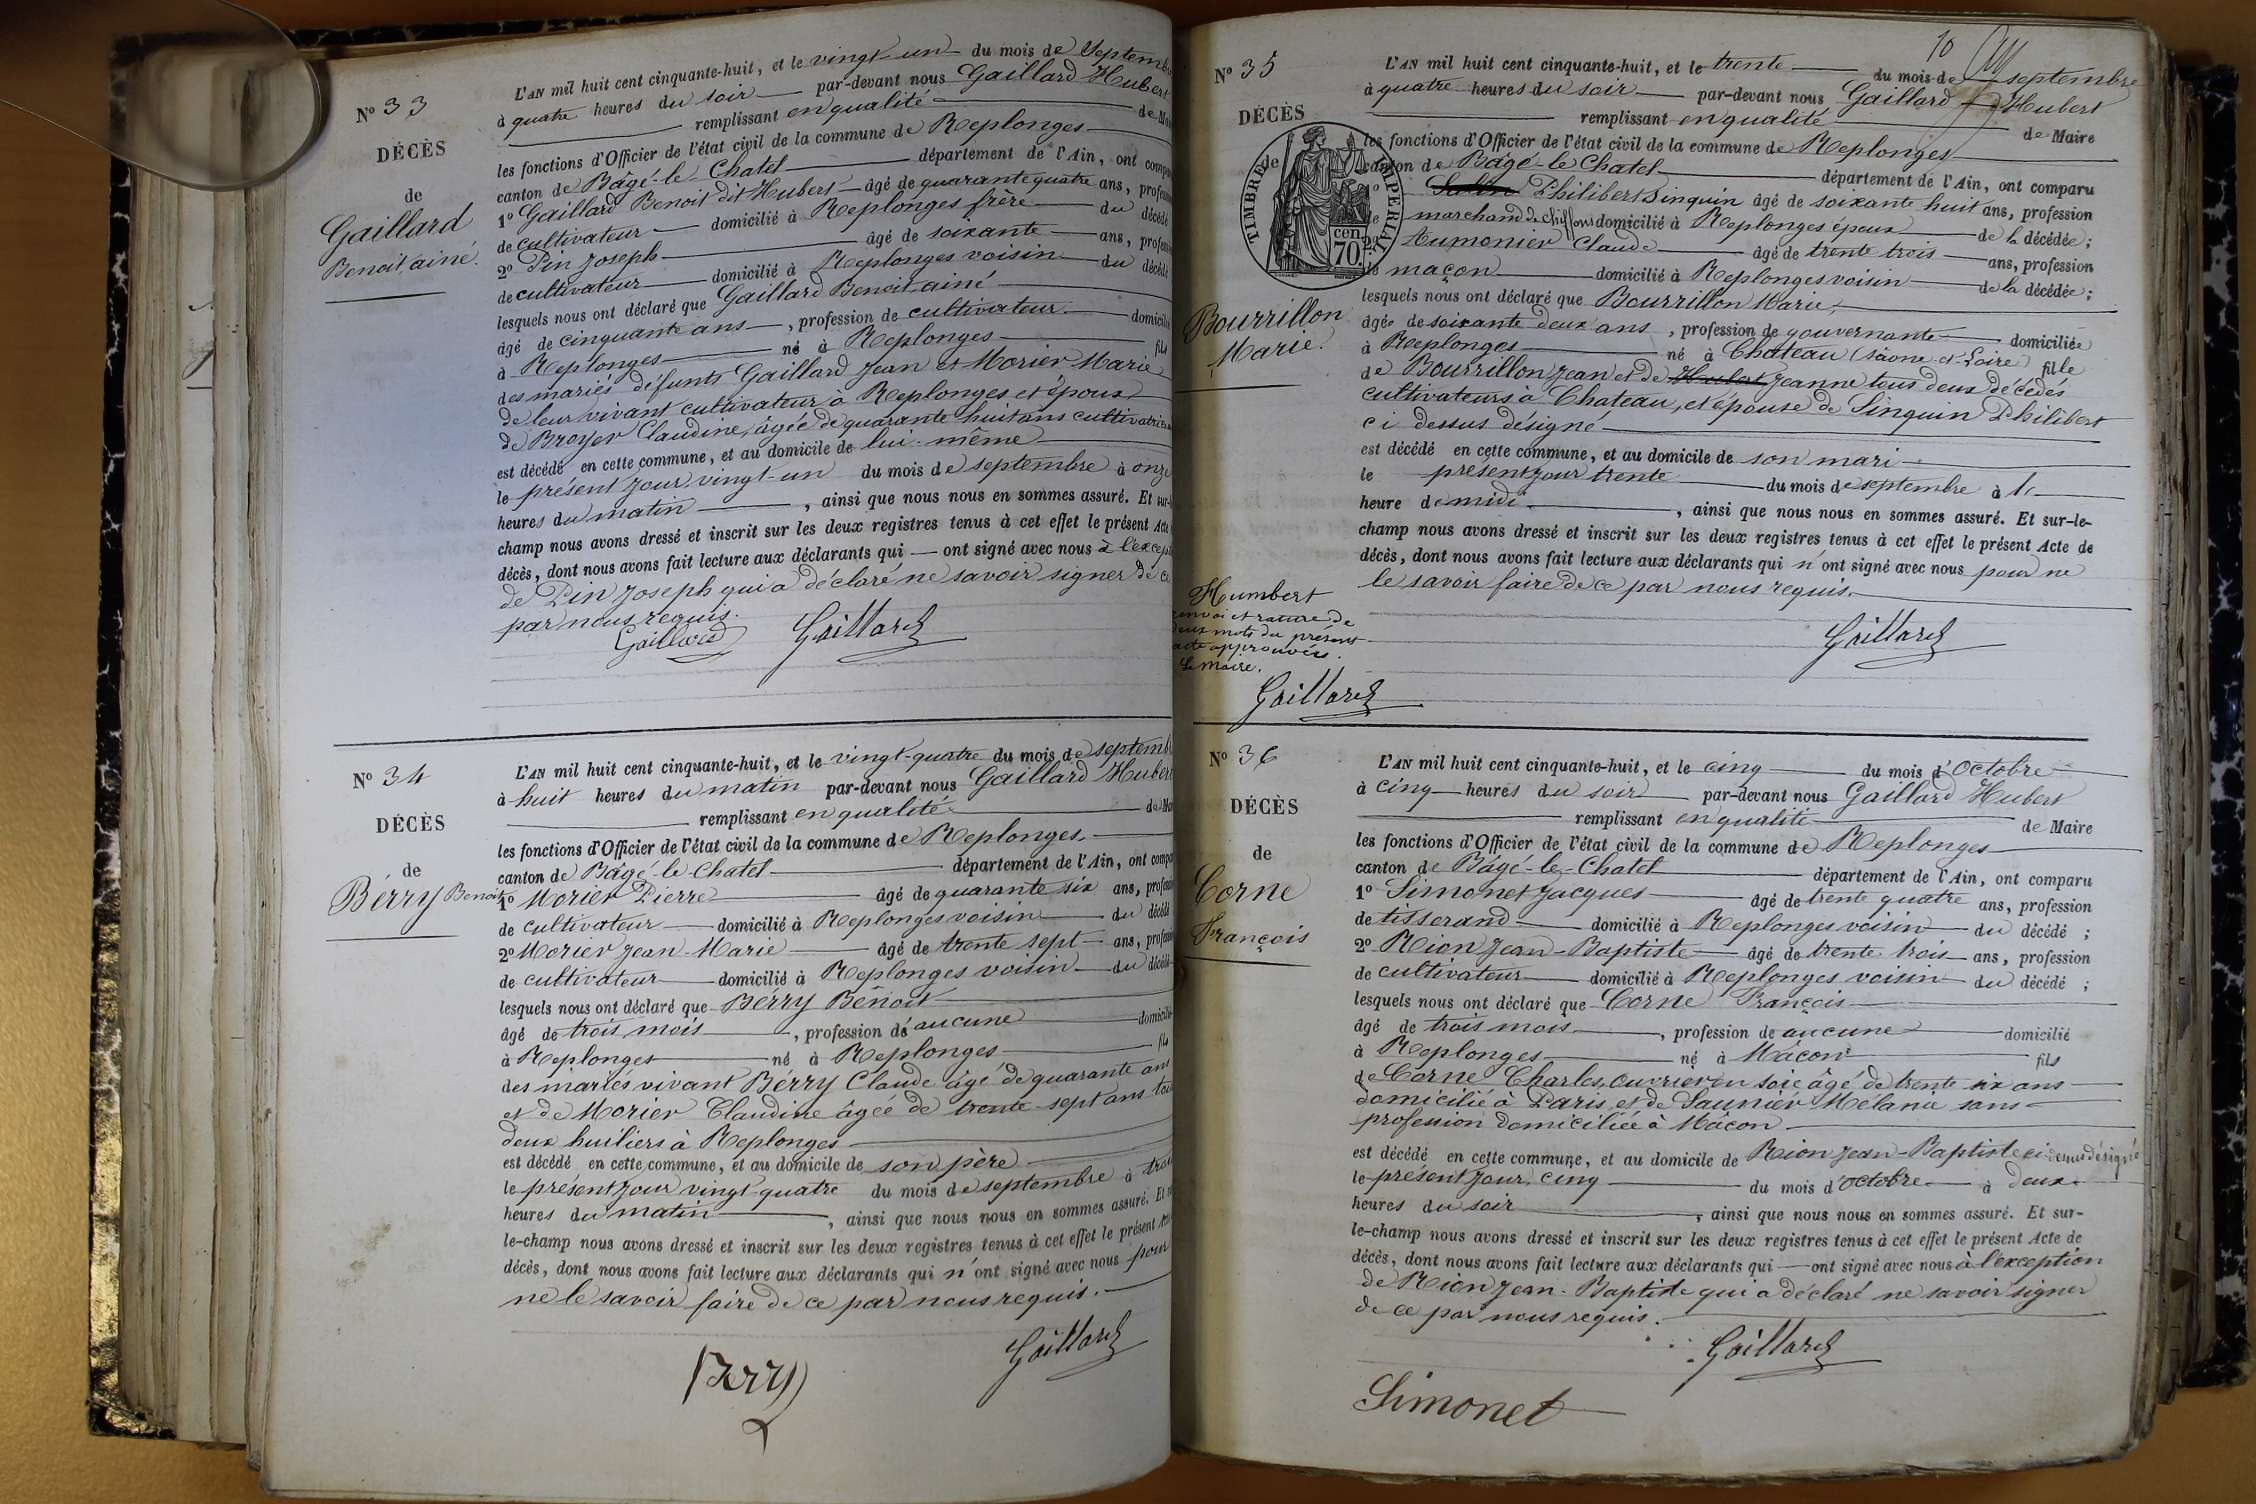 N° 33
DÉCÈS
de
Gaillard
Benoit, ainé.
L'AN mil huit cent cinquante-huit, et le vingt-un du mois de Septemb
à quatre heures du soir par-devant nous Gaillard Hubert
remplissant en qualité de Mai
les fonctions d'Officier de l'état civil de la commune de Replonges
canton de Bâgé-le-Chatel département de l'Ain, ont compa
1° Gaillard Benoit dit Hubert âgé de quarante quatre ans, profess
de cultivateur domicilié à Replonges frère du décédé
2° Pin Joseph âgé de soixante ans, profess
de cultivateur domicilié à Replonges voisin du décédé
lesquels nous ont déclaré que Gaillard Benoit, ainé
âgé de cinquante ans, profession de cultivateur domicilié
à Replonges né à Replonges fils
des mariés défunts Gaillard Jean et Morier Marie
de leur vivant cultivateur à Replonges et époux
de Broyer Claudine, âgée de quarante huit ans cultivatrice
est décédé en cette commune, et au domicile de lui-même
le présent jour vingt-un du mois de septembre à onze
heures du matin, ainsi que nous nous en sommes assuré. Et sur-
champ nous avons dressé et inscrit sur les deux registres tenus à cet effet le présent Acte
décès, dont nous avons fait lecture aux déclarants qui ont signé avec nous à l'except
de Pin Joseph qui a déclaré ne savoir signer de ce
par nous requis.
Gaillard Gaillard
N° 34
DÉCÈS
de
Bérry Benoit
L'AN mil huit cent cinquante-huit, et le vingt-quatre du mois de septemb
à huit heures du matin par-devant nous Gaillard Hubert
remplissant en qualité de Mai
les fonctions d'Officier de l'état civil de la commune de Replonges
canton de Bâgé-le-Chatel département de l'Ain, ont compa
1° Morier Pierre âgé de quarante six ans, profess
de cultivateur domicilié à Replonges voisin du décédé
2° Morier Jean-Marie âgé de trente sept ans, profess
de cultivateur domicilié à Replonges voisin du décédé
lesquels nous ont déclaré que Bérry Bénoit
âgé de trois mois, profession de aucune domicilié
à Replonges né à Replonges fils
des mariés vivant Bérry Claude âgé de quarante ans
et de Morier Claudine âgée de trente-sept ans tous
deux huiliers à Replonges
est décédé en cette commune, et au domicile de son père
le présent jour vingt-quatre du mois de septembre à trois
heures du matin, ainsi que nous nous en sommes assuré. Et
le-champ nous avons dressé et inscrit sur les deux registres tenus à cet effet le présent Acte
décès, dont nous avons fait lecture aux déclarants qui n'ont signé avec nous pour
ne le savoir faire de ce par nous requis.
Gaillard
10
N° 35
DÉCÈS
TIMBRE IMPÉRIAL
70 cen
Bourrillon
Marie.
L'AN mil huit cent cinquante-huit, et le trente du mois de septembre
à quatre heures du soir par-devant nous Gaillard Hubert
remplissant en qualité de Maire
les fonctions d'Officier de l'état civil de la commune de Replonges
canton de Bâgé-le-Chatel département de l'Ain, ont comparu
Philibert Sinquin âgé de soixante huit ans, profession
de marchand de chiffons domicilié à Replonges époux de la décédée;
2° Aumonier Claude âgé de trente trois ans, profession
de maçon domicilié à Replonges voisin de la décédée;
lesquels nous ont déclaré que Bourrillon Marie,
âgée de soixante deux ans, profession de gouvernante domiciliée
à Replonges né à Chateau (Saone-et-Loire) fille
de Bourrillon Jean et de Hubert Jeanne tous deux décédés
cultivateurs à Chateau, et épouse de Sinquin Philibert
ci dessus désigné
est décédé en cette commune, et au domicile de son mari
le présent jour trente du mois de septembre à 1e
heure de midi, ainsi que nous nous en sommes assuré. Et sur-le-
champ nous avons dressé et inscrit sur les deux registres tenus à cet effet le présent Acte de
décès, dont nous avons fait lecture aux déclarants qui n'ont signé avec nous pour ne
le savoir faire de ce par nous requis.
Gaillard
Humbert
renvoi et rature de
deux mots du présent
acte approuvés.
Le Maire.
Gaillard
N° 36
DÉCÈS
de
Corne
François
L'AN mil huit cent cinquante-huit, et le cinq du mois d'Octobre
à cinq heures du soir par-devant nous Gaillard Hubert
remplissant en qualité de Maire
les fonctions d'Officier de l'état civil de la commune de Replonges
canton de Bâgé-le-Chatel département de l'Ain, ont comparu
1° Simonet Jacques âgé de trente quatre ans, profession
de tisserand domicilié à Replonges voisin du décédé;
2° Rion Jean-Baptiste âgé de trente trois ans, profession
de cultivateur domicilié à Replonges voisin du décédé;
lesquels nous ont déclaré que Corne François
âgé de trois mois, profession de aucune domicilié
à Replonges né à Mâcon fils
de Corne Charles, ouvrier en soie âgé de trente six ans
domicilié à Paris, et de Saunier Mélanie sans
profession domiciliée à Mâcon
est décédé en cette commune, et au domicile de Rion Jean-Baptiste ci-dessus désigné
le présent jour cinq du mois d'octobre à deux
heures du soir, ainsi que nous nous en sommes assuré. Et sur-
le-champ nous avons dressé et inscrit sur les deux registres tenus à cet effet le présent Acte de
décès, dont nous avons fait lecture aux déclarants qui ont signé avec nous à l'exception
de Rion Jean-Baptiste qui a déclaré ne savoir signer
de ce par nous requis.
Gaillard
Simonet